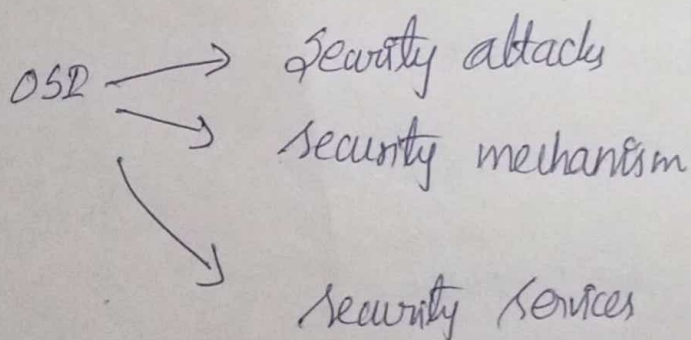 OSI
Security attacks
security mechanism
security services